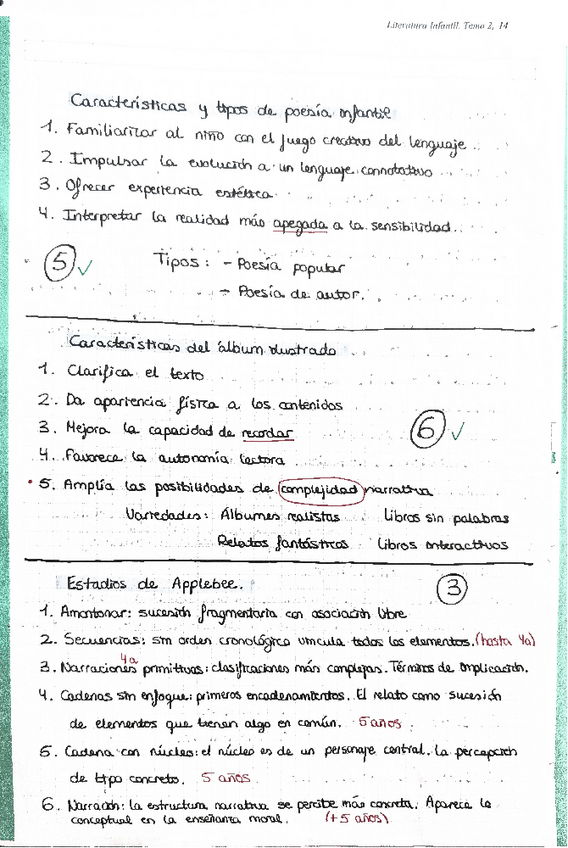 Literatura Infantil. Tema 2, 14
Características y tipos de poesía infantil
1. Familiarizar al niño con el juego creativo del lenguaje.
2. Impulsar la evolución a un lenguaje connotativo
3. Ofrecer experiencia estética
4. Interpretar la realidad más apegada a la sensibilidad.
5 ✓ Tipos: - Poesía popular
- Poesía de autor.
Características del álbum ilustrado
1. Clarifica el texto
2. Da apariencia física a los contenidos
3. Mejora la capacidad de recordar
6 ✓
4. Favorece la autonomía lectora
5. Amplía las posibilidades de complejidad narrativa
Variedades: Álbumes realistas Libros sin palabras
Relatos fantásticos Libros interactivos
Estadios de Applebee. 3
1. Amontonar: sucesión fragmentaria con asociación libre
2. Secuencias: sin orden cronológico vincula todos los elementos. (hasta 4a)
4a
3. Narraciones primitivas: clasificaciones más complejas. Términos de implicación.
4. Cadenas sin enfoque: primeros encadenamientos. El relato como sucesión
de elementos que tienen algo en común. 5 años.
5. Cadena con núcleo: el núcleo es de un personaje central. La percepción
de tipo concreto. 5 años
6. Narración: la estructura narrativa se percibe más concreta. Aparece lo
conceptual en la enseñanza moral. (+5 años)